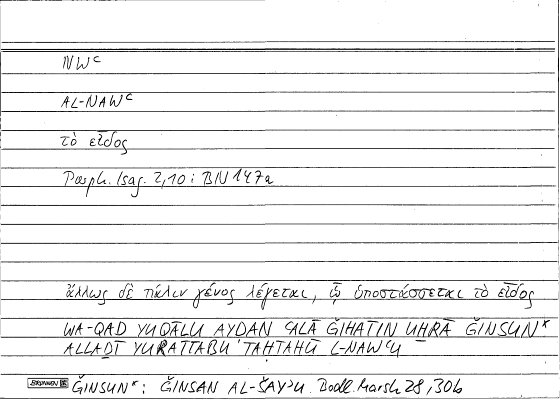 NWᶜ
AL-NAWᶜ
τὸ εἶδος
Porph. Isag. 2,10 : BN 147a
ἄλλως δὲ πάλιν γένος λέγεται, ᾧ ὑποτάσσεται τὸ εἶδος
WA-QAD YUQĀLU AYḌAN ᶜALĀ ǦIHATIN UḪRĀ ǦINSUN*
ALLAḎĪ YURATTABU TAḤTAHŪ L-NAWᶜU
BRUNNEN ǦINSUN*: ǦINSAN AL-ŠAYʾU Bodl. Marsh 28, 30b